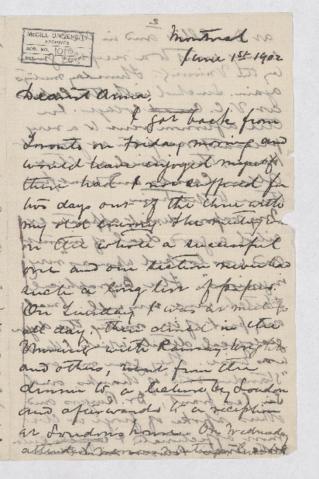 McGILL UNIVERSITY
ARCHIVES
ACC. NO.
REF.
Montreal
June 1st 1902
Dearest Anna,
I got back from
Toronto on Friday morning and
would have enjoyed myself
there had I not suffered for
two days out of the time with
my old enemy. The meeting was
on the whole a successful
one and our section
such a long list of papers.
On Tuesday I was at
all day, then dined in the
with Ramsay Wright
and others, went from the
dinner to a lecture by Loudon
and afterwards to a reception
at Loudon's house. On Wednesday